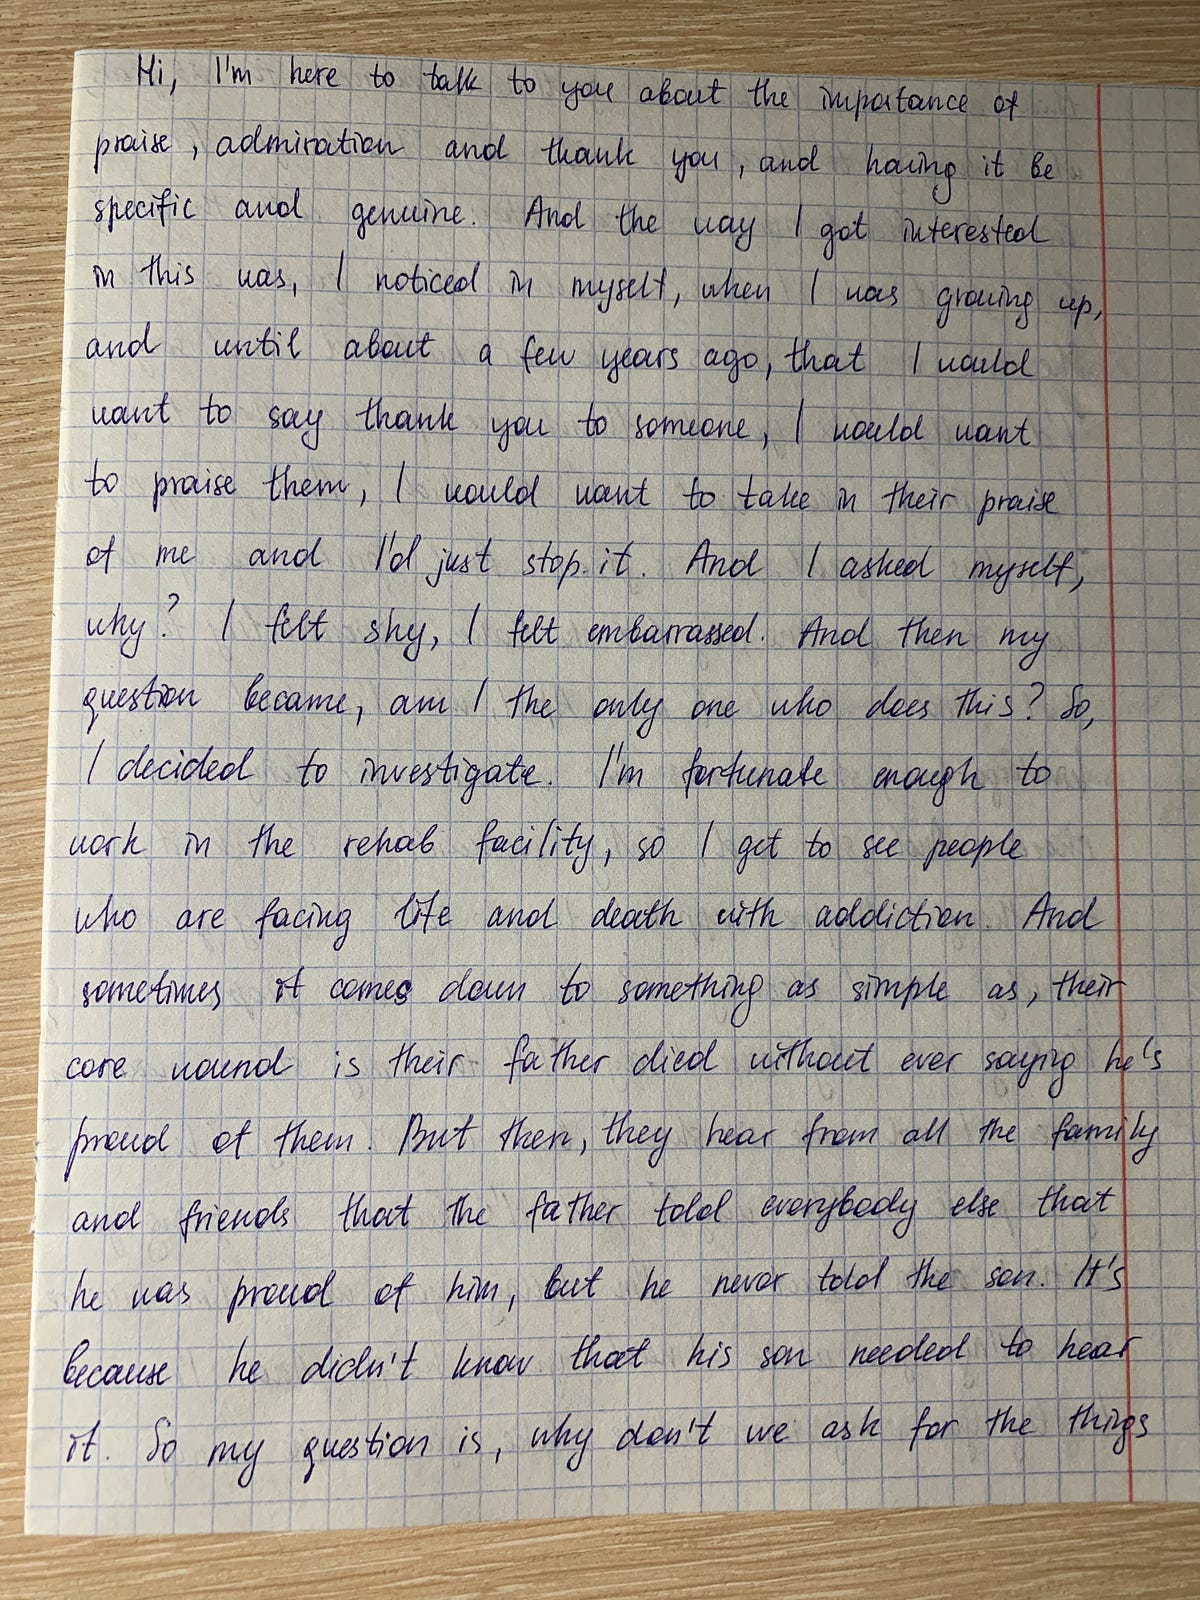 Hi, I'm here to talk to you about the importance of
praise, admiration and thank you, and having it be
specific and genuine. And the way I got interested
in this was, I noticed in myself, when I was growing up,
and until about a few years ago, that I would
want to say thank you to someone, I would want
to praise them, I would want to take in their praise
of me and I'd just stop it. And I asked myself,
why? I felt shy, I felt embarrassed. And then my
question became, am I the only one who does this? So,
I decided to investigate. I'm fortunate enough to
work in the rehab facility, so I get to see people
who are facing life and death with addiction. And
sometimes it comes down to something as simple as, their
core wound is their father died without ever saying he's
proud of them. But then, they hear from all the family
and friends that the father told everybody else that
he was proud of him, but he never told the son. It's
because he didn't know that his son needed to hear
it. So my question is, why don't we ask for the things